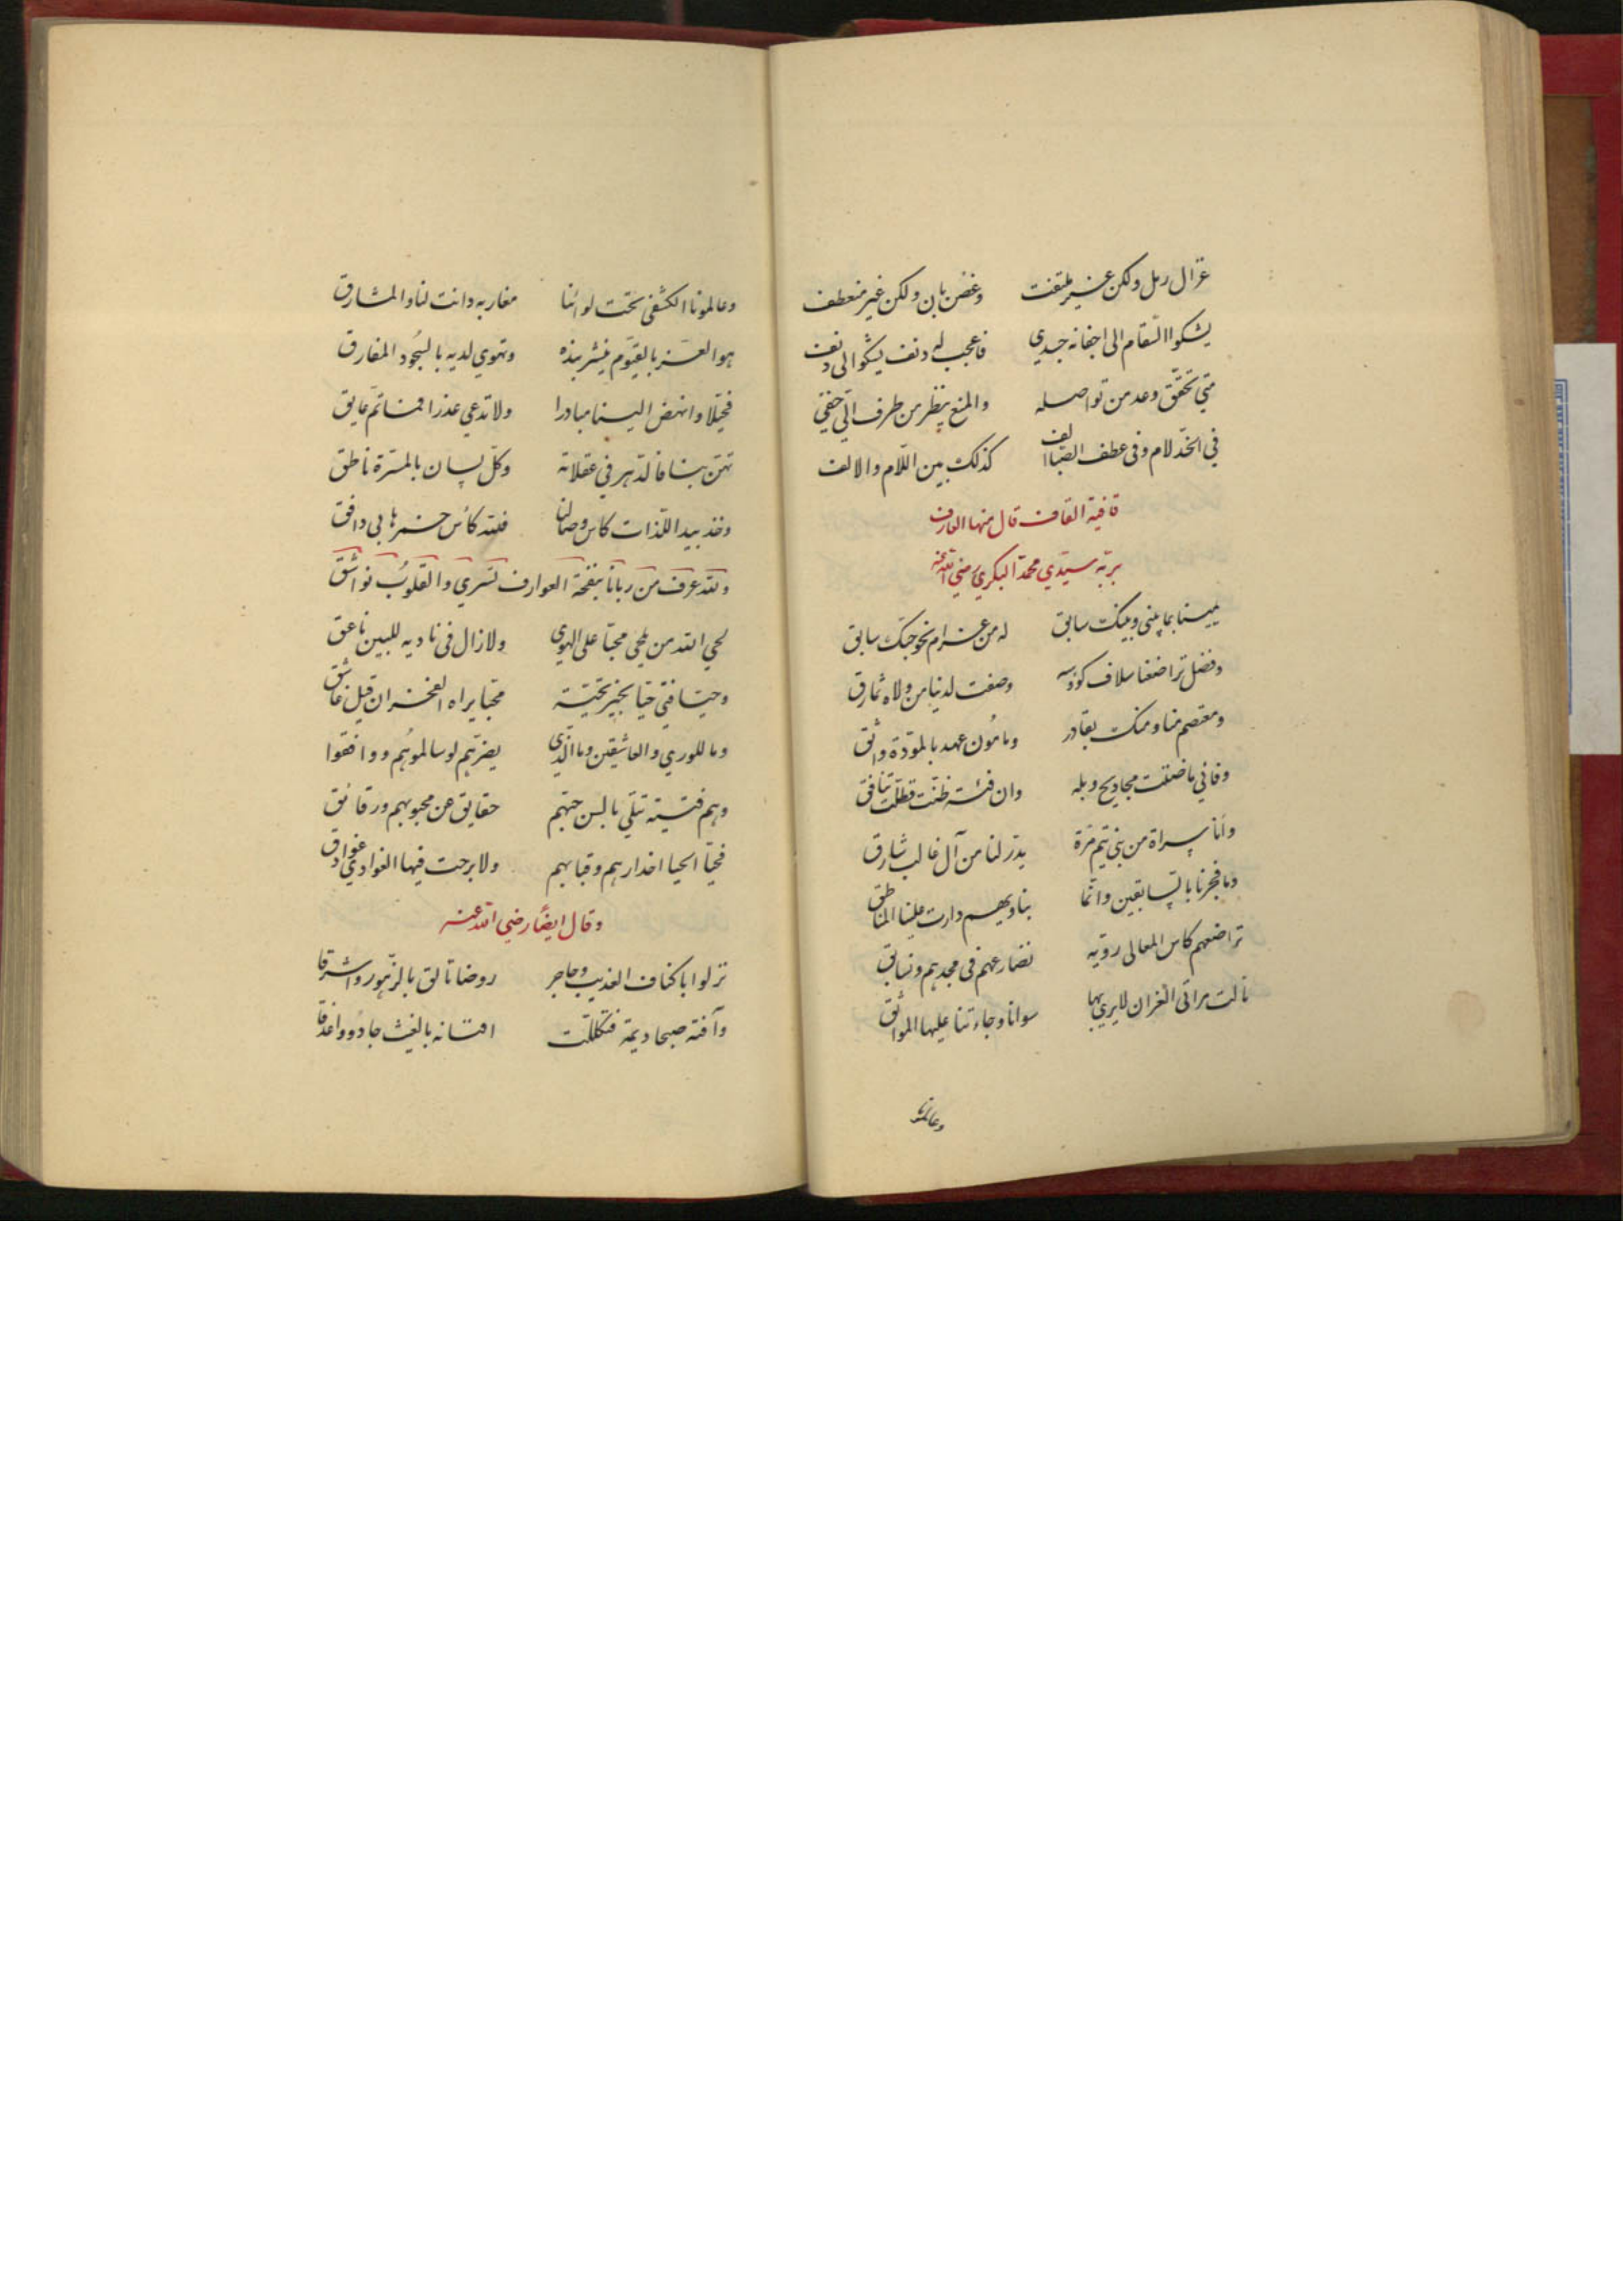 غزال رمل ولكن غير ملتفت وغصن بان ولكن غير منعطف
يشكوا السقام الى اجفانه جسدي فاعجب له دنف يشكوا الى دنف
متى تحقق وعد من تواصله والمنع ينظر من طرف اليّ خفي
في الخدّ لام وفى عطف الصّبا الف كذلك بين اللّام والالف
قافية القاف قال منها العارف
بربّه سيّدي محمّد البكري رضي الله عنه
يمينا بما بيني وبينك سابق له من غرام نحو حبّك سابق
وفضل تراضعنا سلاف كؤوسه وصفت لدينا من ولاه نمارق
ومعتصم منا ومنك بقادر ومامُون عهد بالمودّة واثق
وفاني ما ضنّت مجاديح وبله وان فئة ظنّت قطلّت تنافق
وأنا سراة من بني تيم مرّة بدر لنا من آل غالب شارق
وما فجرنا بالسّابقين وانّما بناديهم دارت علينا المناطق
تراضعهم كاس المعالى رويّة نضارعهم فى مجدهم ونسابق
نالت مراقى الغران لا يرى بها سوانا وجاءتنا عليها المواثق
وعالمونا
وعالمونا الكشفي تحت لوائنا مغاربه دانت لنا والمشارق
هو العز بالقيّوم ينشر بنده وتهوي لديه بالسجُود المفارق
فحيّلا وانهض الينا مبادرا ولا تدعي عذرا فمنا ثمّ عايق
تهن بنا فالدّهر في غفلاته وكلّ لسان بالمسرّة ناطق
وخذ بيد اللّذات كاس وصالنا فلله كأس خمرها بي دافق
ولله عرف من ربانا بنفحة العوارف تسري والقلوبُ نواشق
لحي الله من يلحي محبّا على الهوي ولا زال فى ناديه للبين ناعق
وحيّا فتي حيّا بخير تحيّة محبّا يراه الفخر ان قيل عاشق
وما للوري والعاشقين وما الّذي يضرّهم لو سالموُهم ووافقوا
وهم فتية تتلي بالسن حبّهم حقايق عن محبوبهم ورقائق
فحيّا الحيا اخدارهم وقبابهم ولا برحت فيها الغوادي غوادق
وقال ايضًا رضي الله عنه
نزلوا باكناف العذيب وحاجر روضا تألق بالزّهور واشرقا
وآفته صبحا ديمة فتكللت افنانه بالغيث جادُوواغدقا